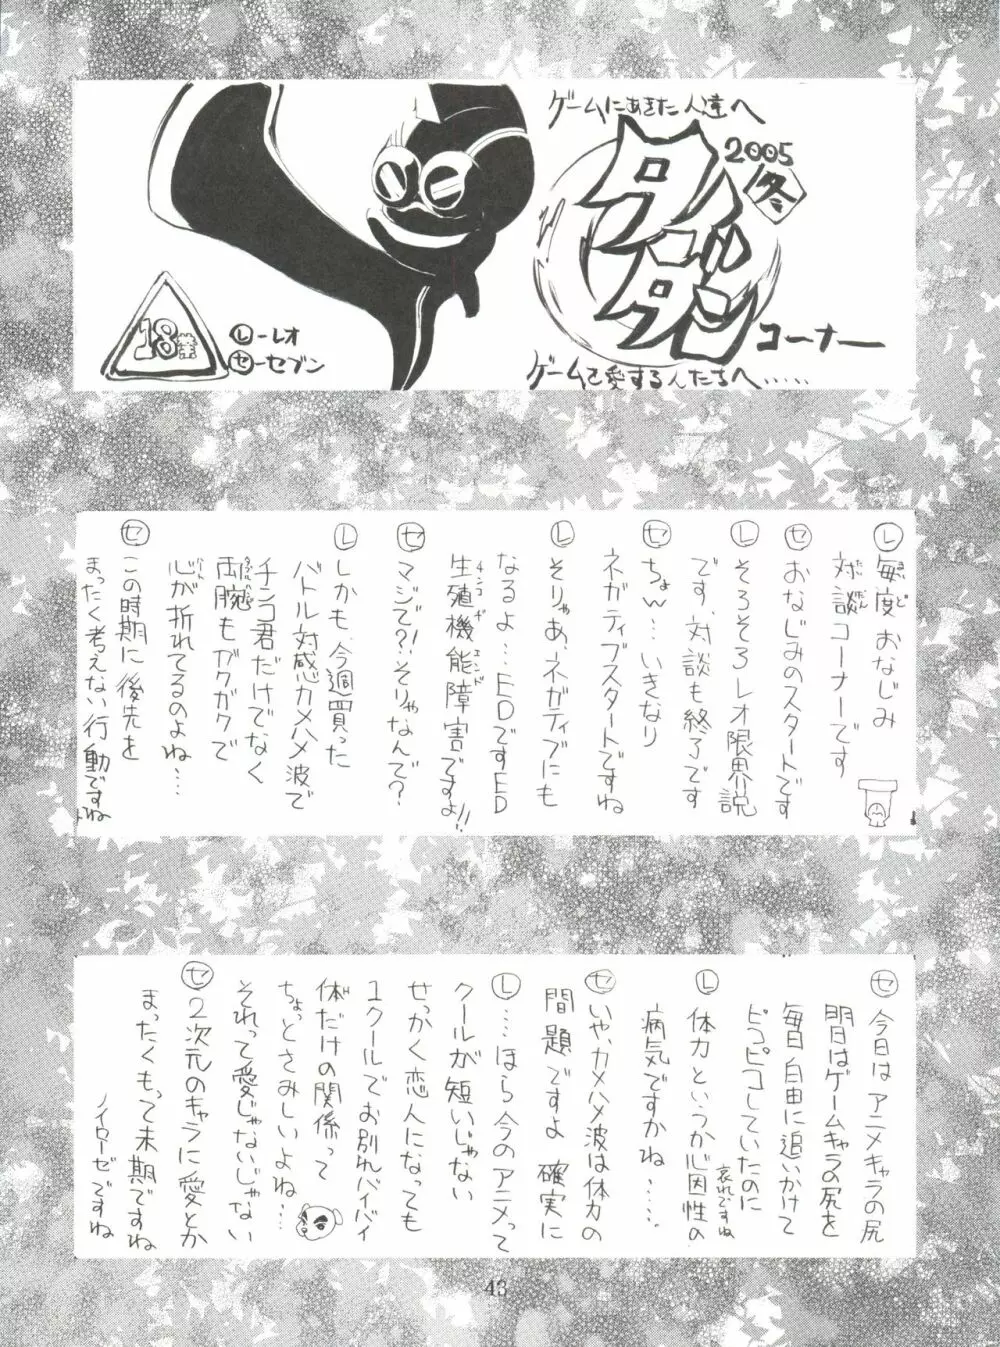 ゲームにあきた人達へ
2005
冬
タイダン
コーナー
ゲームを愛する人たちへ……
18禁
レ-レオ
セ-セブン
レ 毎度おなじみ
対談コーナーです
セ おなじみのスタートです
レ そろそろレオ限界説
です、対談も終了です
セ ちょw…いきなり
ネガティブスタートですね
レ そりゃあ、ネガティブにも
なるよ…EDですED
生殖機能障害ですよ!!
セ マジで?!そりゃなんで?
レ しかも、今週買った
バトル対感カメハメ波で
チンコ君だけでなく
両腕もガクガクで
心が折れてるのよね…
セ この時期に後先を
まったく考えない行動ですね
セ 今日はアニメキャラの尻
明日はゲームキャラの尻を
毎日自由に追いかけて
ピコピコしていたのに
哀れですね
レ 体力というか心因性の
病気ですかね……
セ いや、カメハメ波は体力の
問題ですよ 確実に
レ ……ほら今のアニメって
クールが短いじゃない
せっかく恋人になっても
1クールでお別れバイバイ
体だけの関係って
ちょっとさみしいよね…
それって愛じゃないじゃない
セ 2次元のキャラに愛とか
まったくもって末期ですね
ノイローゼですね
43